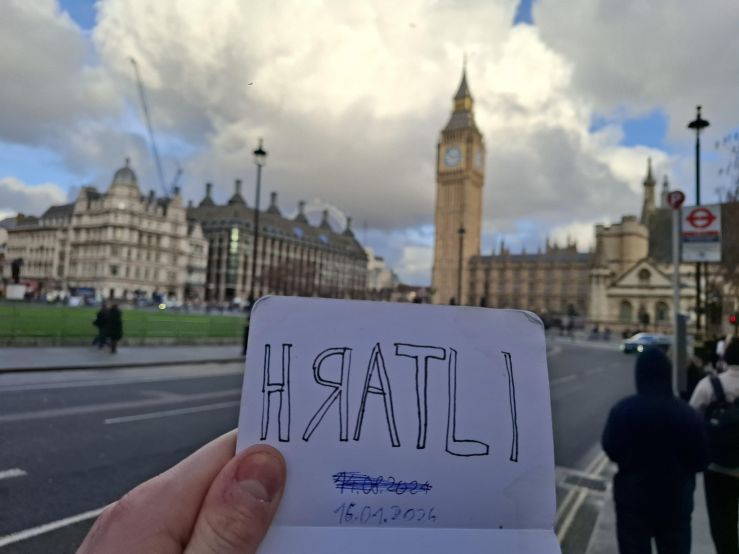 HЯATLI
14.08.2024
16.01.2026